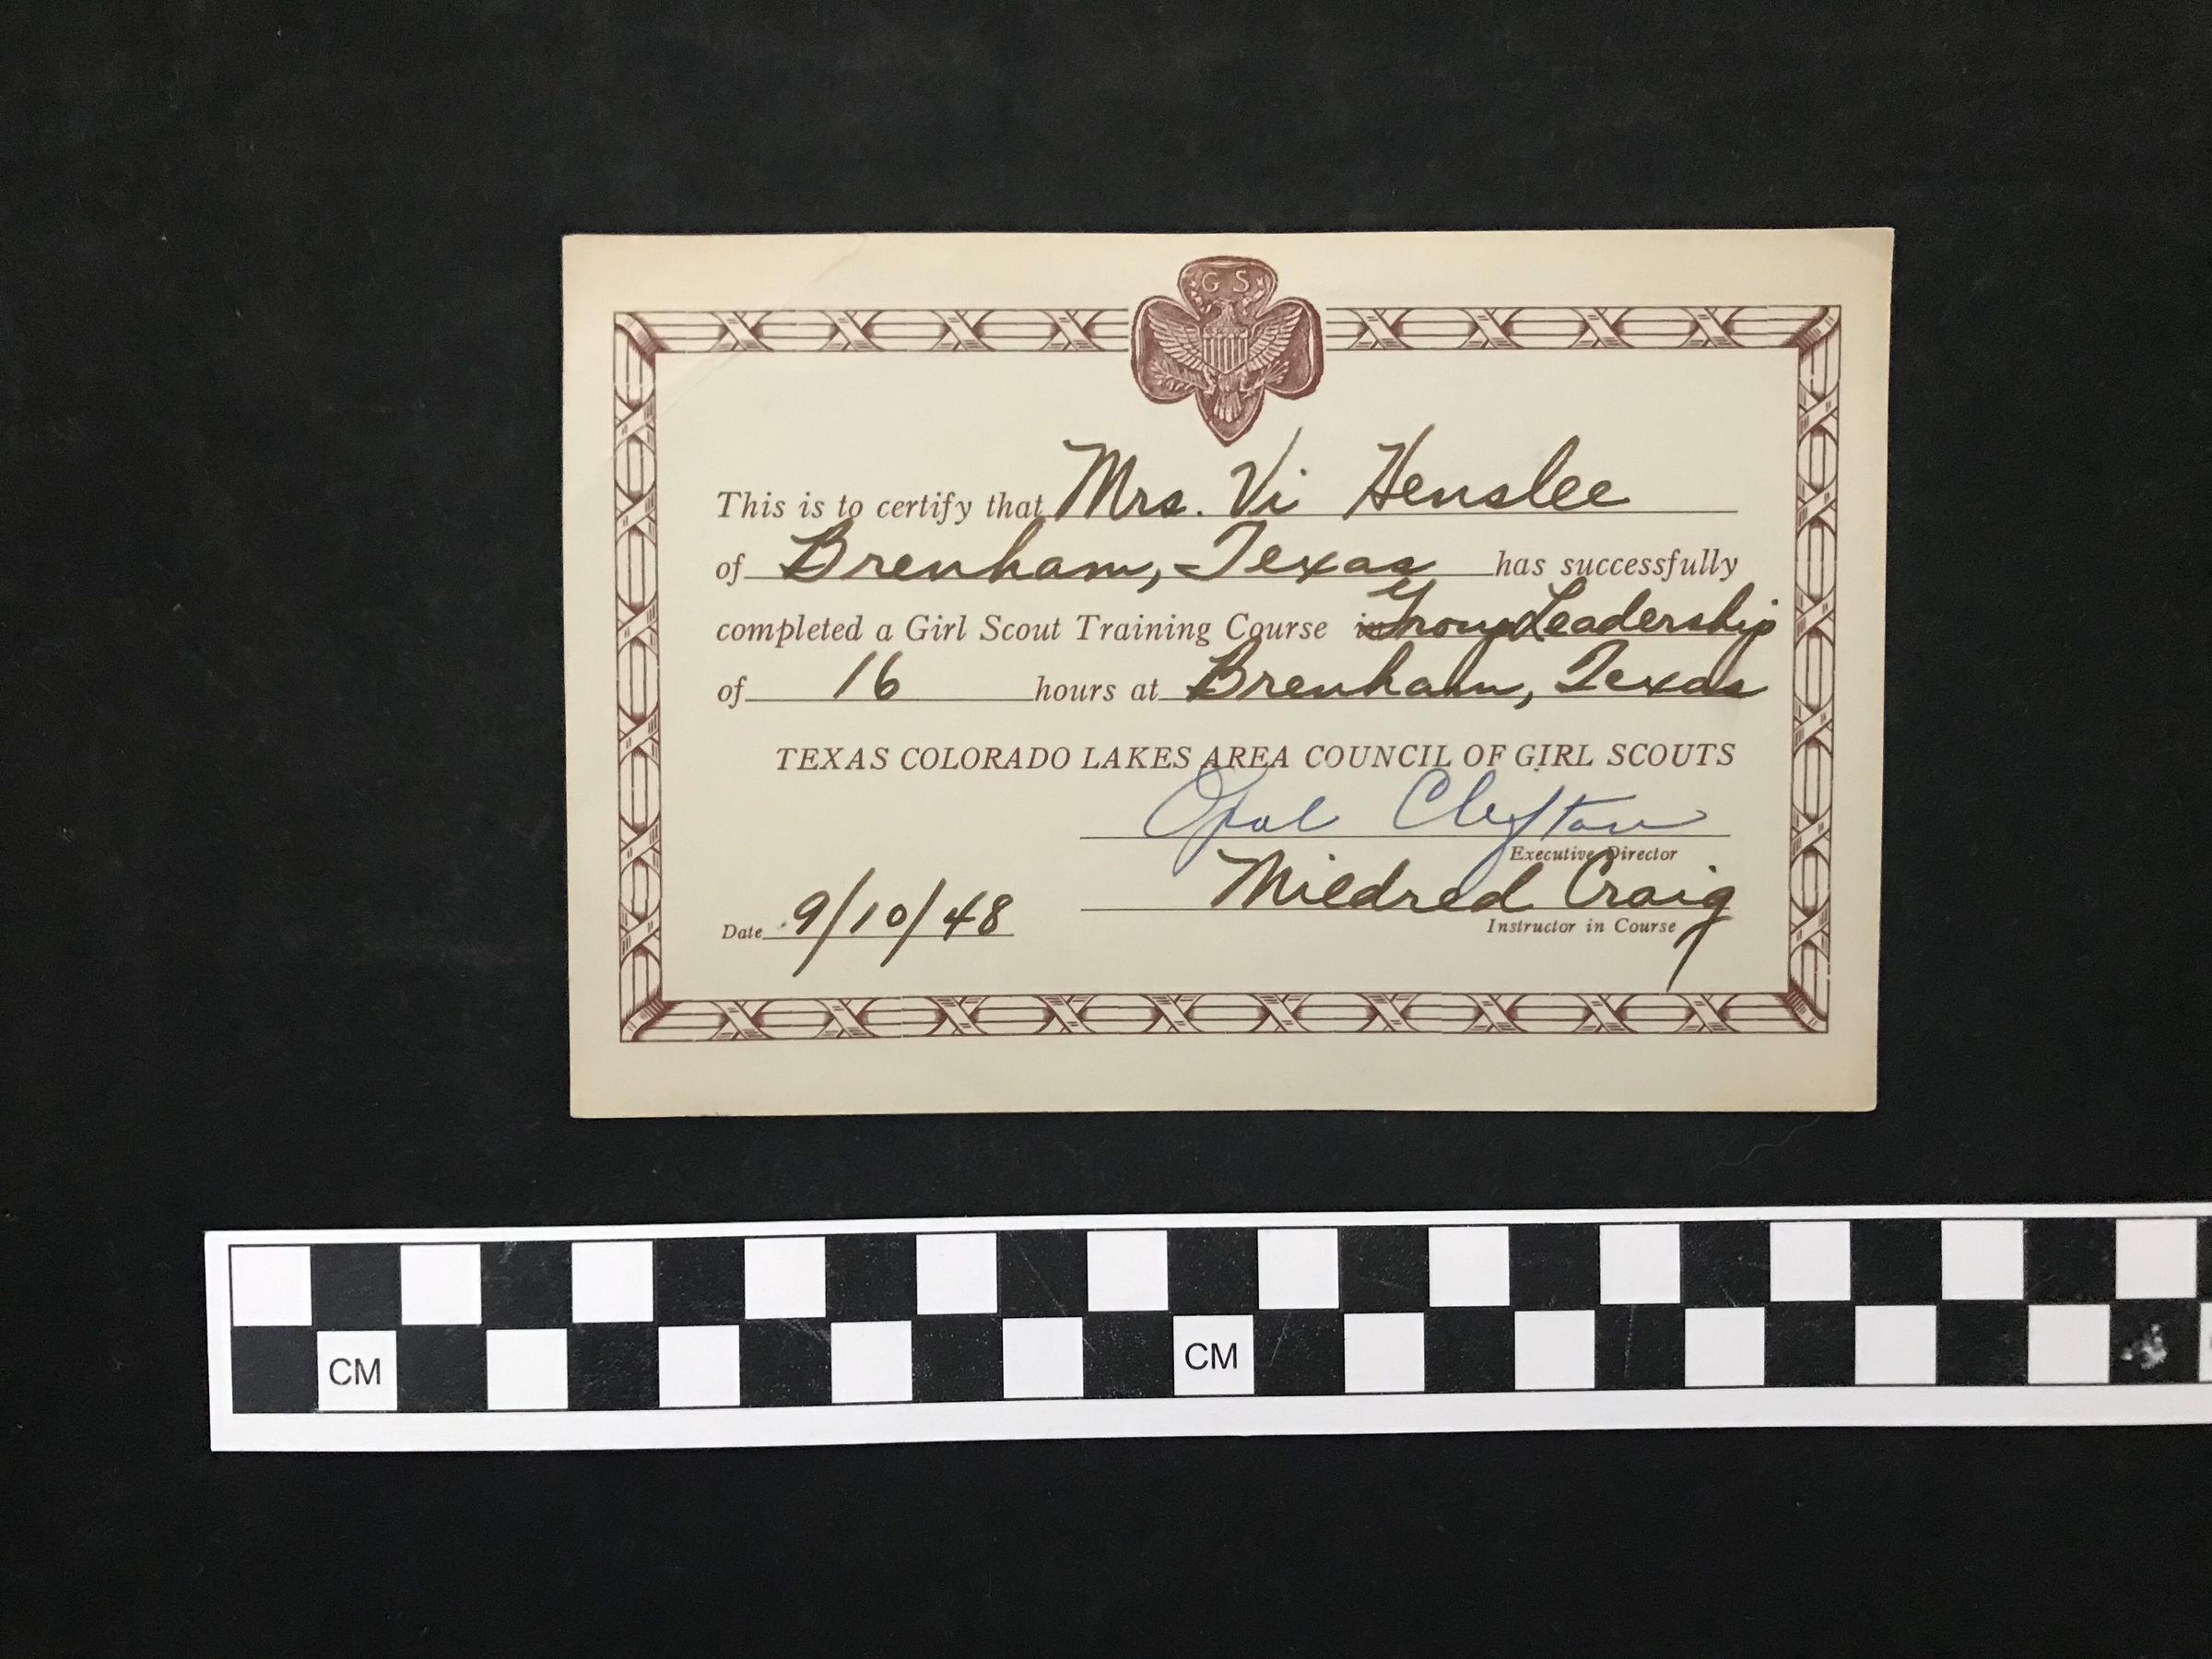 G S
This is to certify that Mrs. Vi Henslee
of Brenham, Texas has successfully
completed a Girl Scout Training Course in Group Leadership
of 16 hours at Brenham, Texas
TEXAS COLORADO LAKES AREA COUNCIL OF GIRL SCOUTS
Opal Clayton
Executive Director
Mildred Craig
Date 9/10/48 Instructor in Course
CM CM